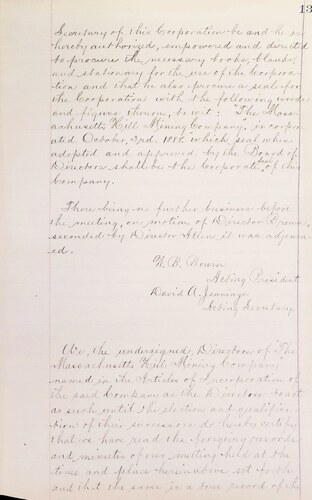 13
Secretary of this Corporation be and he is
hereby authorized, empowered and directed
to procure the necessary books, blanks
and stationary for the use of the Corpora-
tion and that he also procure a seal for
the Corporation with the following words
and figures thereon, to wit: "The Mass-
achusetts Hill Mining Company," incorpor-
ated October, 3rd, which seal when
adopted and approved by the Board of
Directors shall be the Corporate seal of this
Company.
There being no further business before
the meeting, on motion of Director Brown,
seconded by Director it was adjourn-
ed.
W. B. Bourn
Acting President
David A. Jennings
Acting Secretary
We, the undersigned, Directors of "The
Massachusetts Hill Mining Company,"
named in the Articles of Incorporation of
the said Company as the Directors to act
as such until the election and qualifica-
tion of their successors do hereby certify
that we have read the foregoing records
and minutes of our meeting held at the
time and place herein above set forth
and that the same is a true record of the